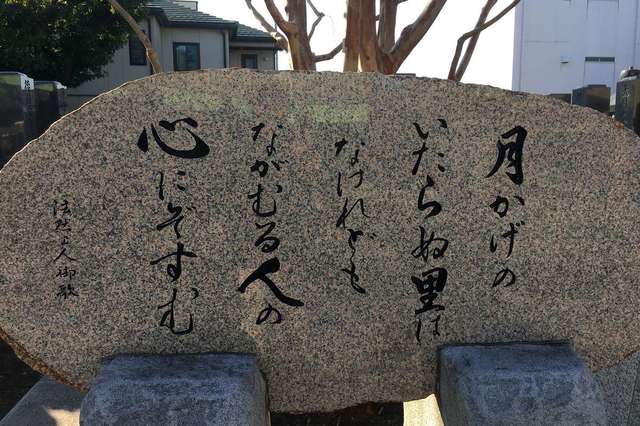 月かげの
いたらぬ里は
なけれども
ながむる人の
心にぞすむ
法然上人御歌